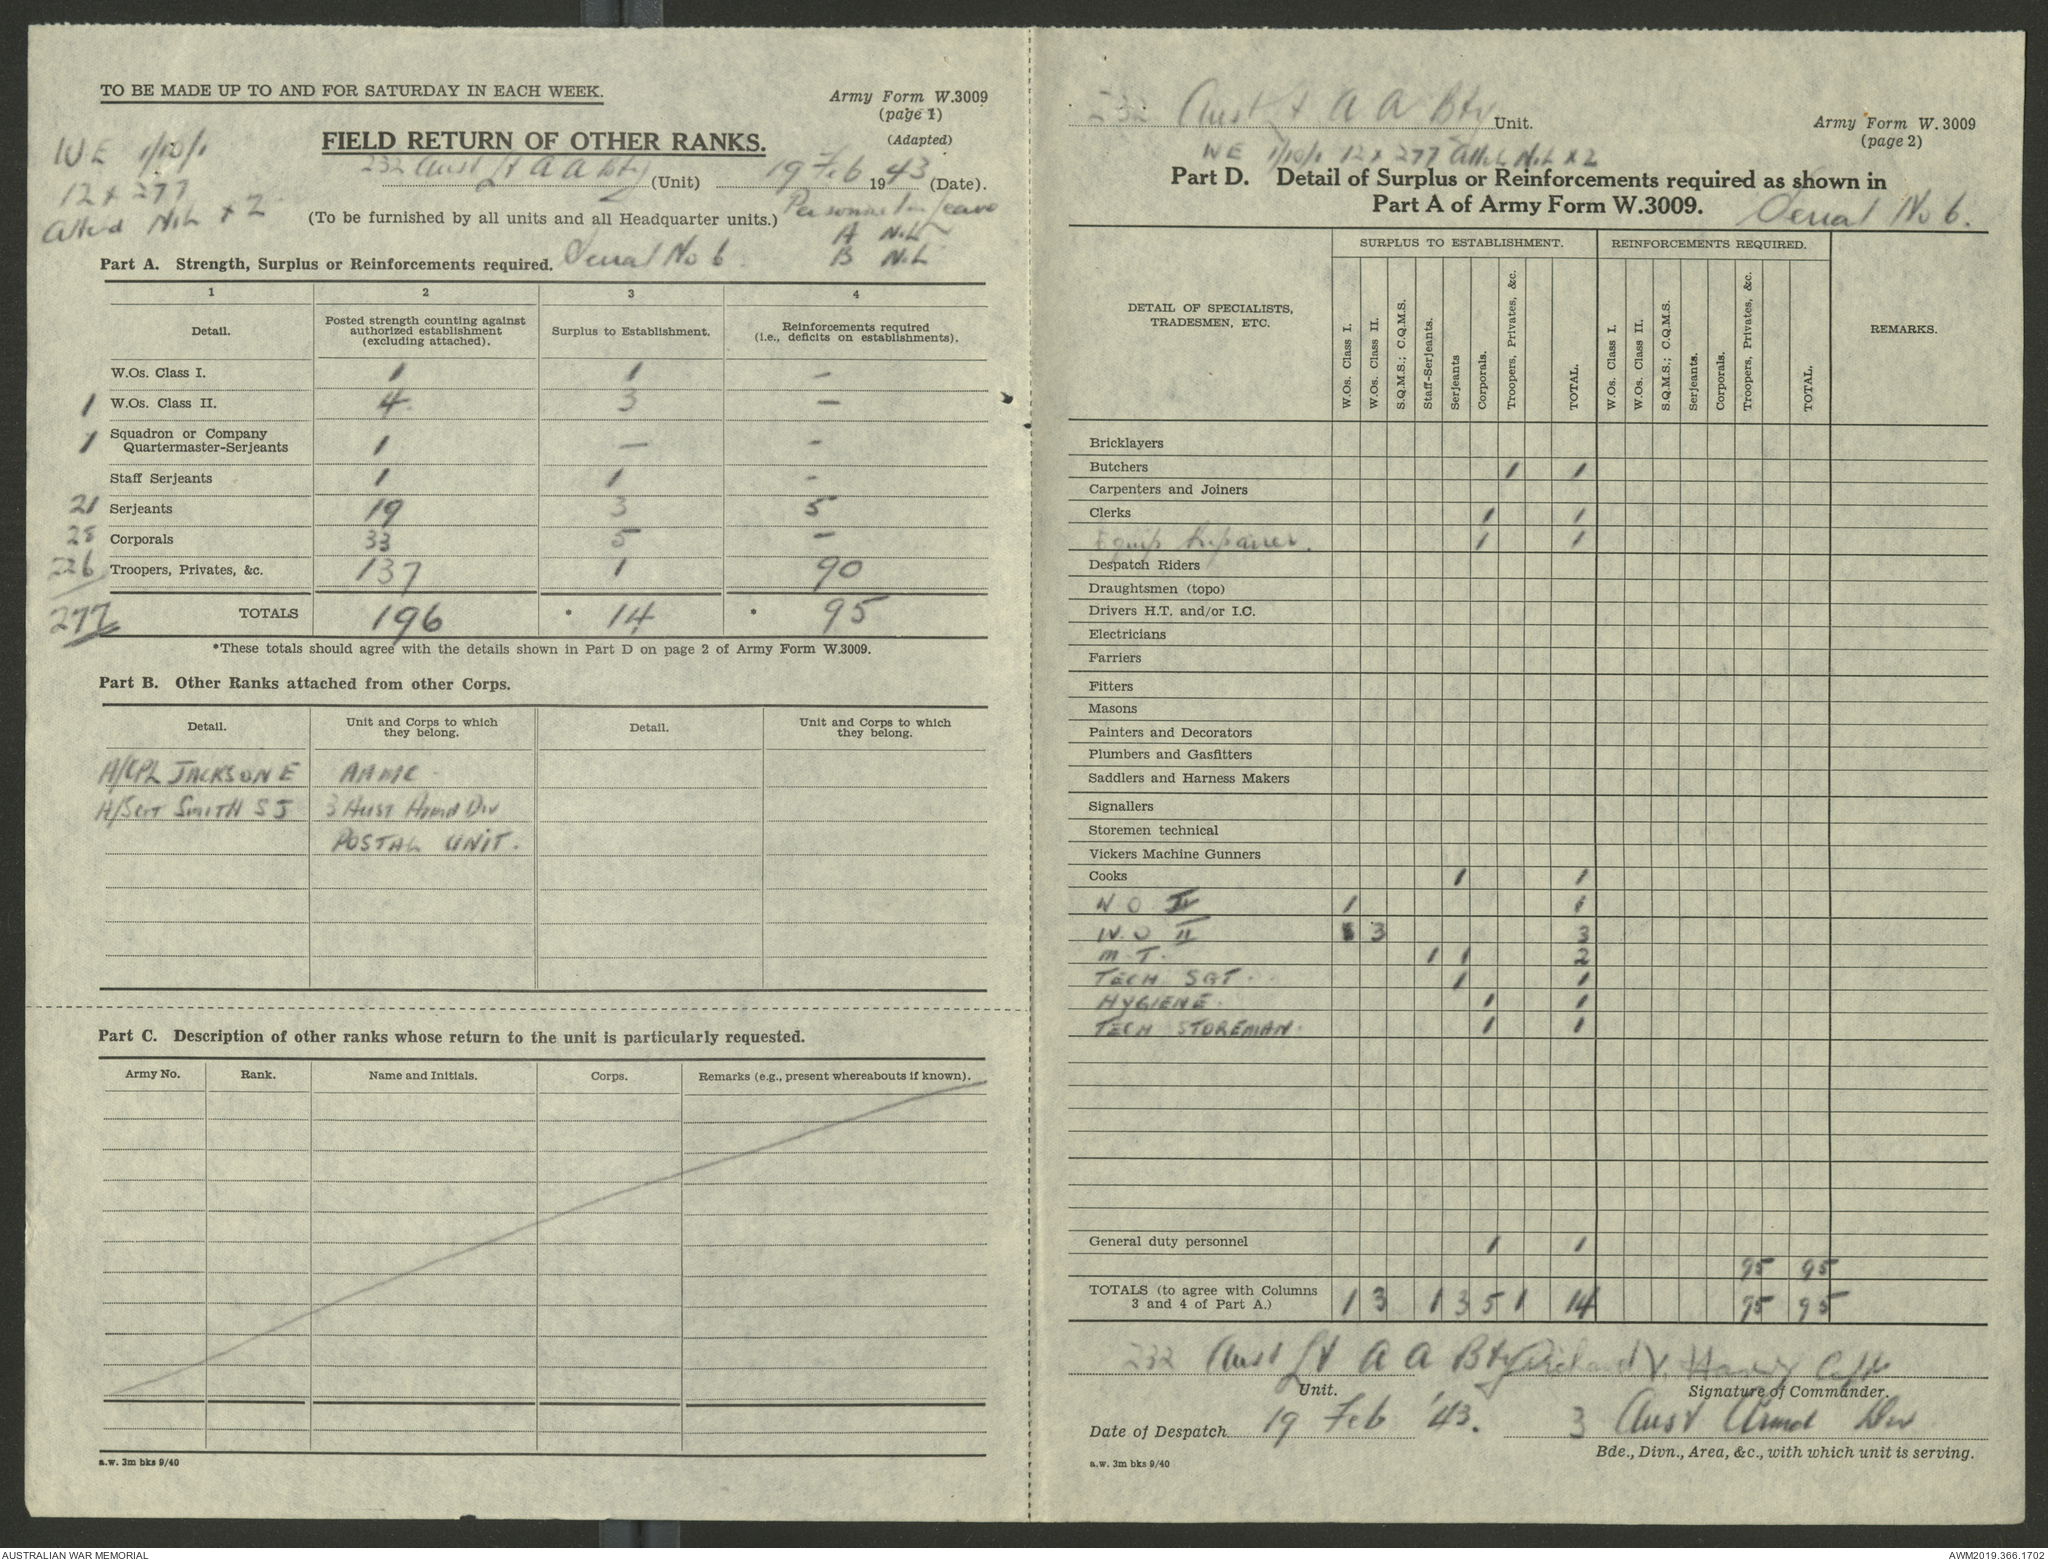 TO BE MADE UP TO AND FOR SATURDAY IN EACH WEEK.
Army Form W.3009
(page 1)
(Adapted)
WE 1/10/1
12 x 277
Attchd Nil x 2
FIELD RETURN OF OTHER RANKS.
232 Aust Lt A A Bty (Unit) 19 Feb 1943 (Date).
(To be furnished by all units and all Headquarter units.)
Personnel on leave
A Nil
B Nil
Part A. Strength, Surplus or Reinforcements required. Serial No 6.
1 2 3 4
Detail. Posted strength counting against authorized establishment (excluding attached). Surplus to Establishment. Reinforcements required (i.e., deficits on establishments).
W.Os. Class I. 1 1 –
1 W.Os. Class II. 4 3 –
1 Squadron or Company Quartermaster-Serjeants 1 – –
Staff Serjeants 1 1 –
21 Serjeants 19 3 5
28 Corporals 33 5 –
226 Troopers, Privates, &c. 137 1 90
277 TOTALS 196 * 14 * 95
*These totals should agree with the details shown in Part D on page 2 of Army Form W.3009.
Part B. Other Ranks attached from other Corps.
Detail. Unit and Corps to which they belong. Detail. Unit and Corps to which they belong.
A/CPL JACKSON E AAMC.
A/SGT SMITH S J 3 Aust Armd Div
POSTAL UNIT.
Part C. Description of other ranks whose return to the unit is particularly requested.
Army No. Rank. Name and Initials. Corps. Remarks (e.g., present whereabouts if known).
a.w. 3m bks 9/40
232 Aust Lt A A Bty Unit.
Army Form W. 3009
(page 2)
WE 1/10/1 12 x 277 Attch Nil x 2
Part D. Detail of Surplus or Reinforcements required as shown in
Part A of Army Form W.3009. Serial No 6.
DETAIL OF SPECIALISTS, TRADESMEN, ETC. SURPLUS TO ESTABLISHMENT. REINFORCEMENTS REQUIRED. REMARKS.
W.Os. Class I. W.Os. Class II. S.Q.M.S.; C.Q.M.S. Staff-Serjeants. Serjeants Corporals. Troopers, Privates, &c. TOTAL. W.Os. Class I. W.Os. Class II. S.Q.M.S.; C.Q.M.S. Serjeants. Corporals. Troopers, Privates, &c. TOTAL.
Bricklayers
Butchers 1 1
Carpenters and Joiners
Clerks 1 1
Equip Repairer. 1 1
Despatch Riders
Draughtsmen (topo)
Drivers H.T. and/or I.C.
Electricians
Farriers
Fitters
Masons
Painters and Decorators
Plumbers and Gasfitters
Saddlers and Harness Makers
Signallers
Storemen technical
Vickers Machine Gunners
Cooks 1 1
W O 1 1
W.O II 3 3
M T. 1 1 2
TECH SGT. 1 1
HYGIENE. 1 1
TECH STOREMAN. 1 1
General duty personnel 1 1
95 95
TOTALS (to agree with Columns 3 and 4 of Part A.) 1 3 1 3 5 1 14 95 95
232 Aust Lt A A Bty Richard V. Capt
Unit. Signature of Commander.
Date of Despatch 19 Feb '43. 3 Aust Armd Div
Bde., Divn., Area, &c., with which unit is serving.
a.w. 3m bks 9/40
AUSTRALIAN WAR MEMORIAL
AWM2019.366.1702